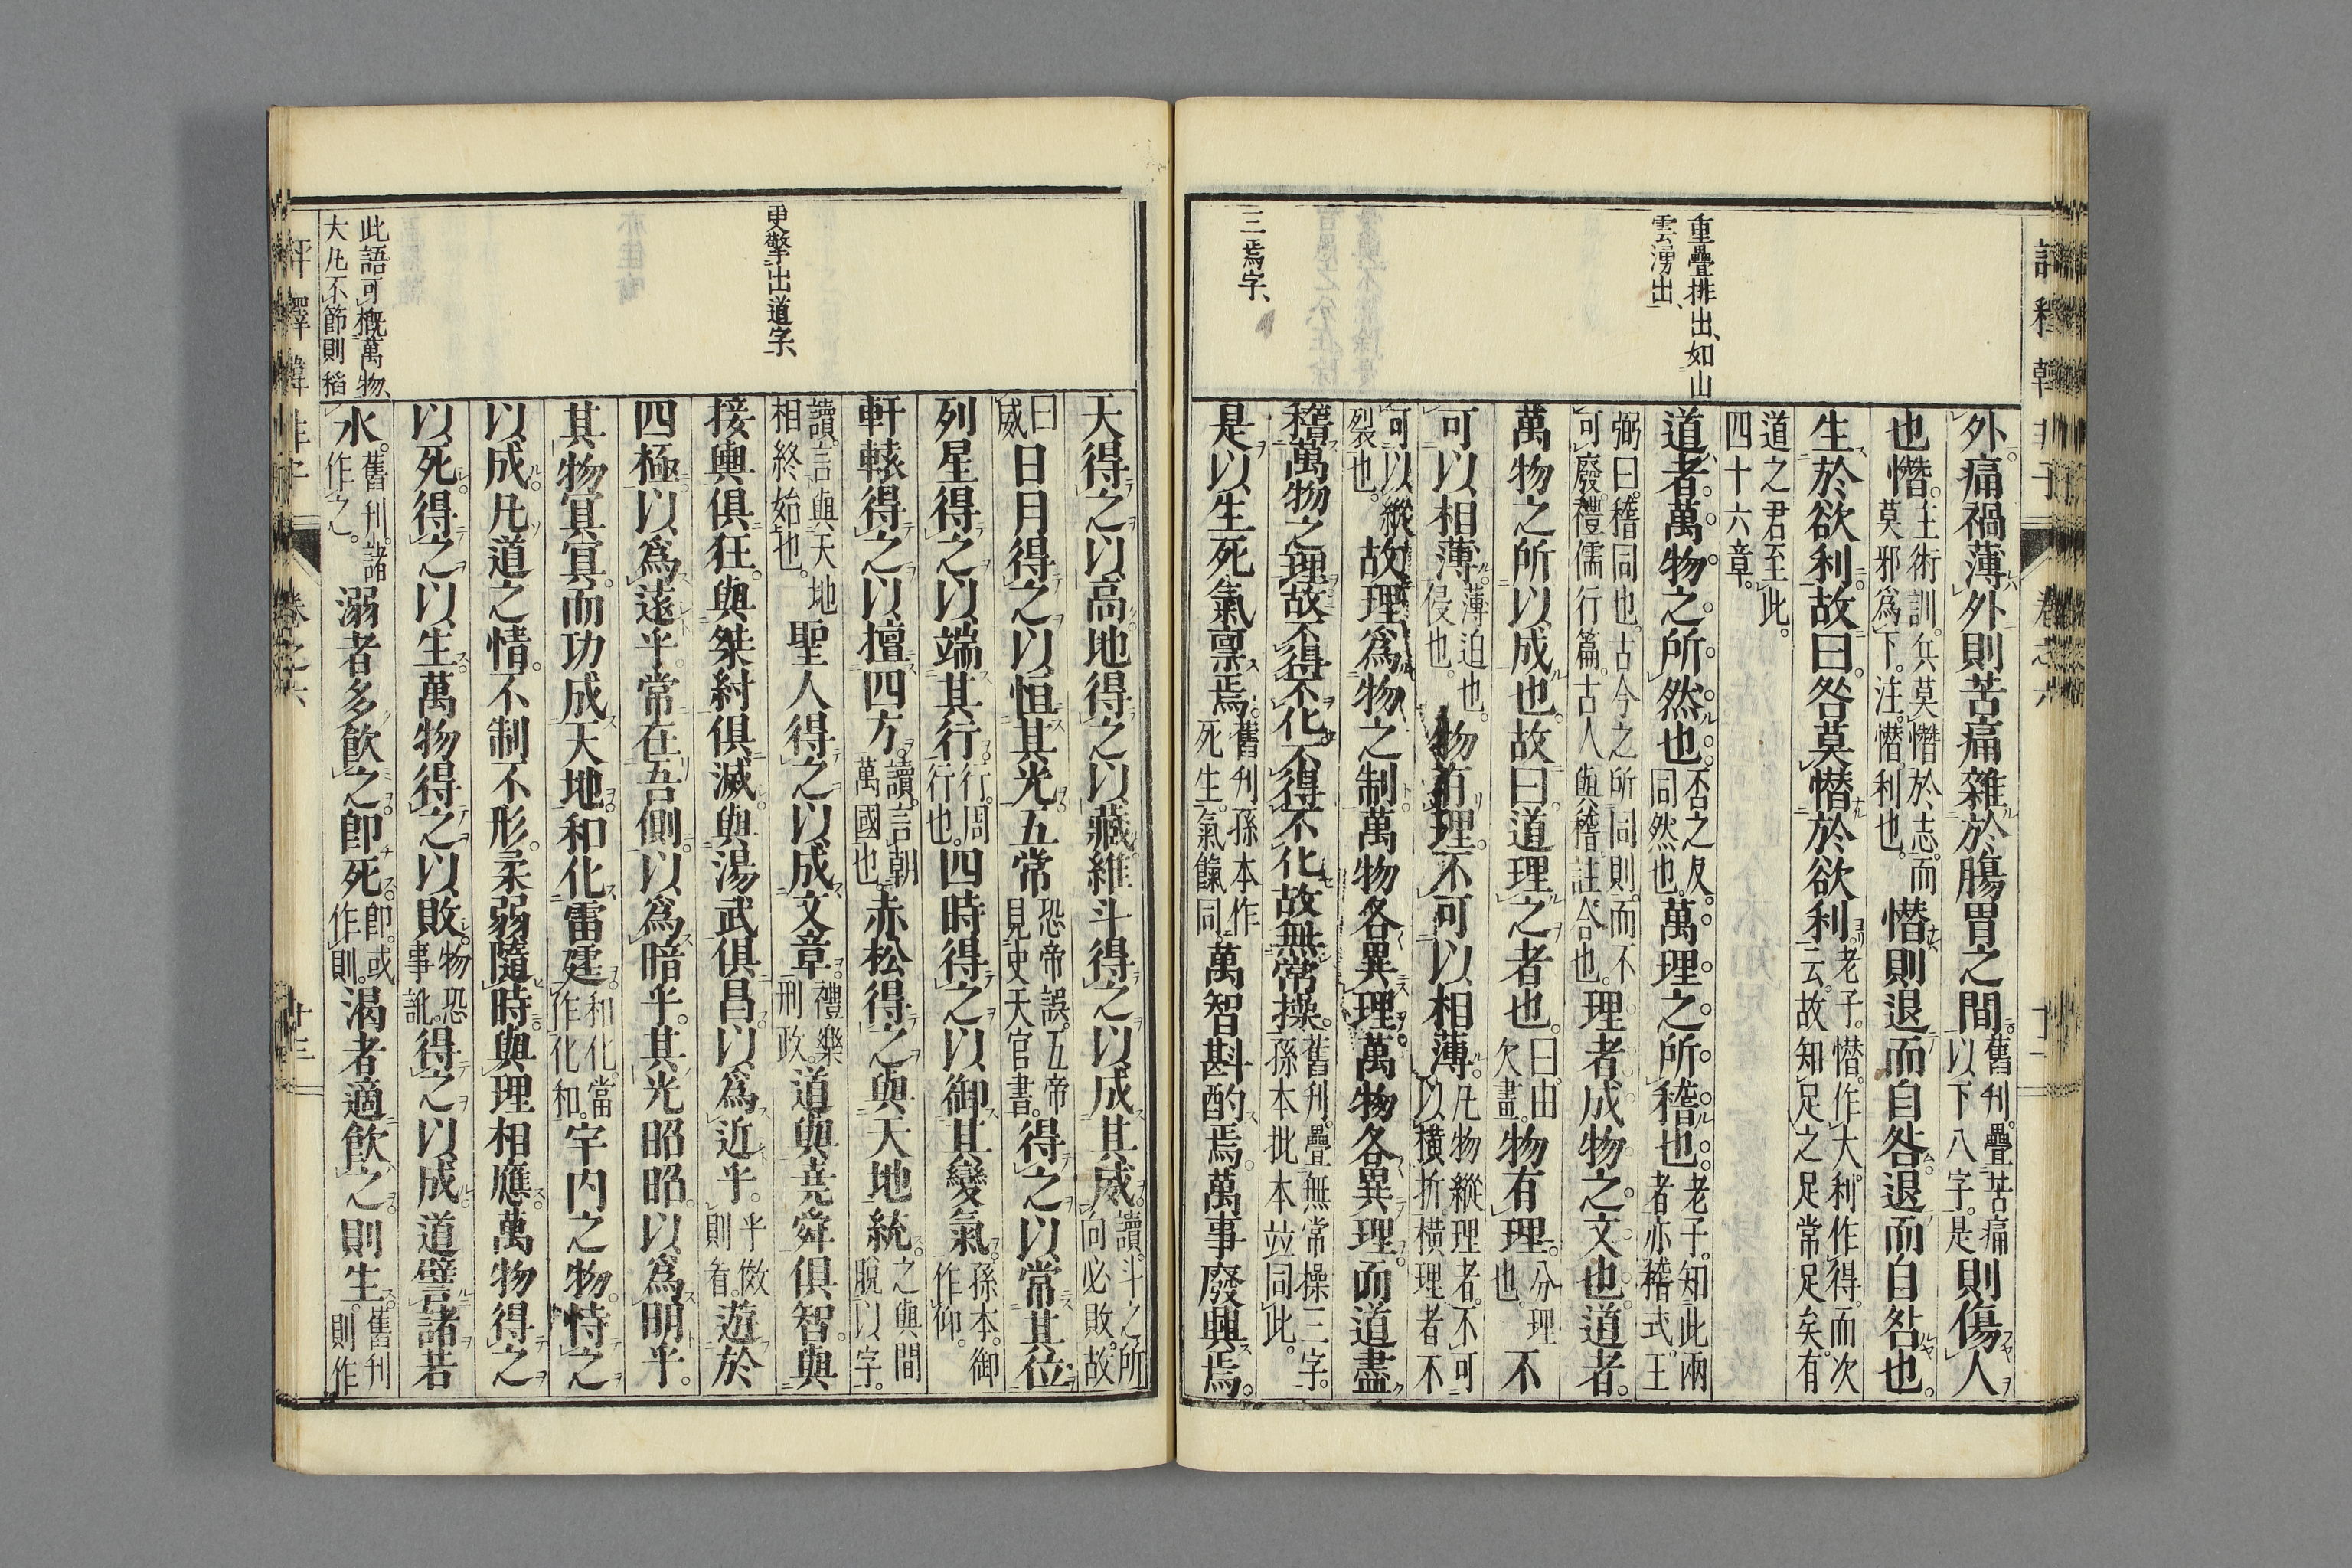 重疊排出、如山
雲湧出、
三焉字、
外。痛禍薄外則苦痛雜於腸胃之間。舊刊。疊苦痛以下八字。是則傷人
也。憯。主術訓。兵莫憯於志。而莫邪爲下。注。憯。利也。憯則退而自咎。退而自咎也。
生於欲利。故曰。咎莫憯於欲利。老子。憯。作大。利。作得。而次云。故知足之足常足矣。有
道之君至此。四十六章。
道者。萬物之所然也。否之反。同然也。萬理之所稽也。老子。知此兩者亦稽式。王
弼曰。稽同也。古今之所同則。而不可廢。禮儒行篇。古人與稽。註。合也。理者成物之文也。道者。
萬物之所以成也。故曰。道理之者也。曰。由欠畫。物有理。分理也。不
可以相薄。薄迫也。侵也。物有理。不可以相薄。凡物縱理者。不可以橫折。橫理者不
可以縱裂也。故理爲物之制。萬物各異理。萬物各異理。而道盡
稽萬物之理。故不得不化。不得不化。故無常操。舊刊。疊無常操三字。孫本批本竝同此。
是以生死氣禀焉。舊刊孫本作死生。氣餼同。萬智斟酌焉。萬事廢興焉。
評釋韓非子 卷之六
更擎出道字、
此語可概萬物、
大凡不節則稻
天得之以高。地得之以藏。維斗得之以成其威。讀。斗之所向必敗。故
曰威日月得之以恒其光。五常恐帝誤。五帝見史天官書。得之以常其位。
列星得之以端其行。行。周行也。四時得之以御其變氣。孫本。御作仰。
軒轅得之以擅四方。讀。言朝萬國也。赤松得之與天地統。之與間脫以字。
讀。言與天地相終始也。聖人得之以成文章。禮樂刑政。道與堯舜俱智。與
接輿俱狂。與桀紂俱滅。與湯武俱昌。以爲近乎。乎倣則看。遊於
四極。以爲遠乎。常在吾側。以爲暗乎。其光昭昭。以爲明乎。
其物冥冥。而功成天地。和化雷霆。和化。當作化和。宇内之物。恃之
以成。凡道之情。不制不形。柔弱隨時。與理相應。萬物得之
以死。得之以生。萬物得之以敗。物恐事訛。得之以成。道譬諸若
水。舊刊。諸作之。溺者多飲之。卽死。卽。或作則。渴者適飲之。則生。舊刊則作
評釋韓非子 卷之六 廿三